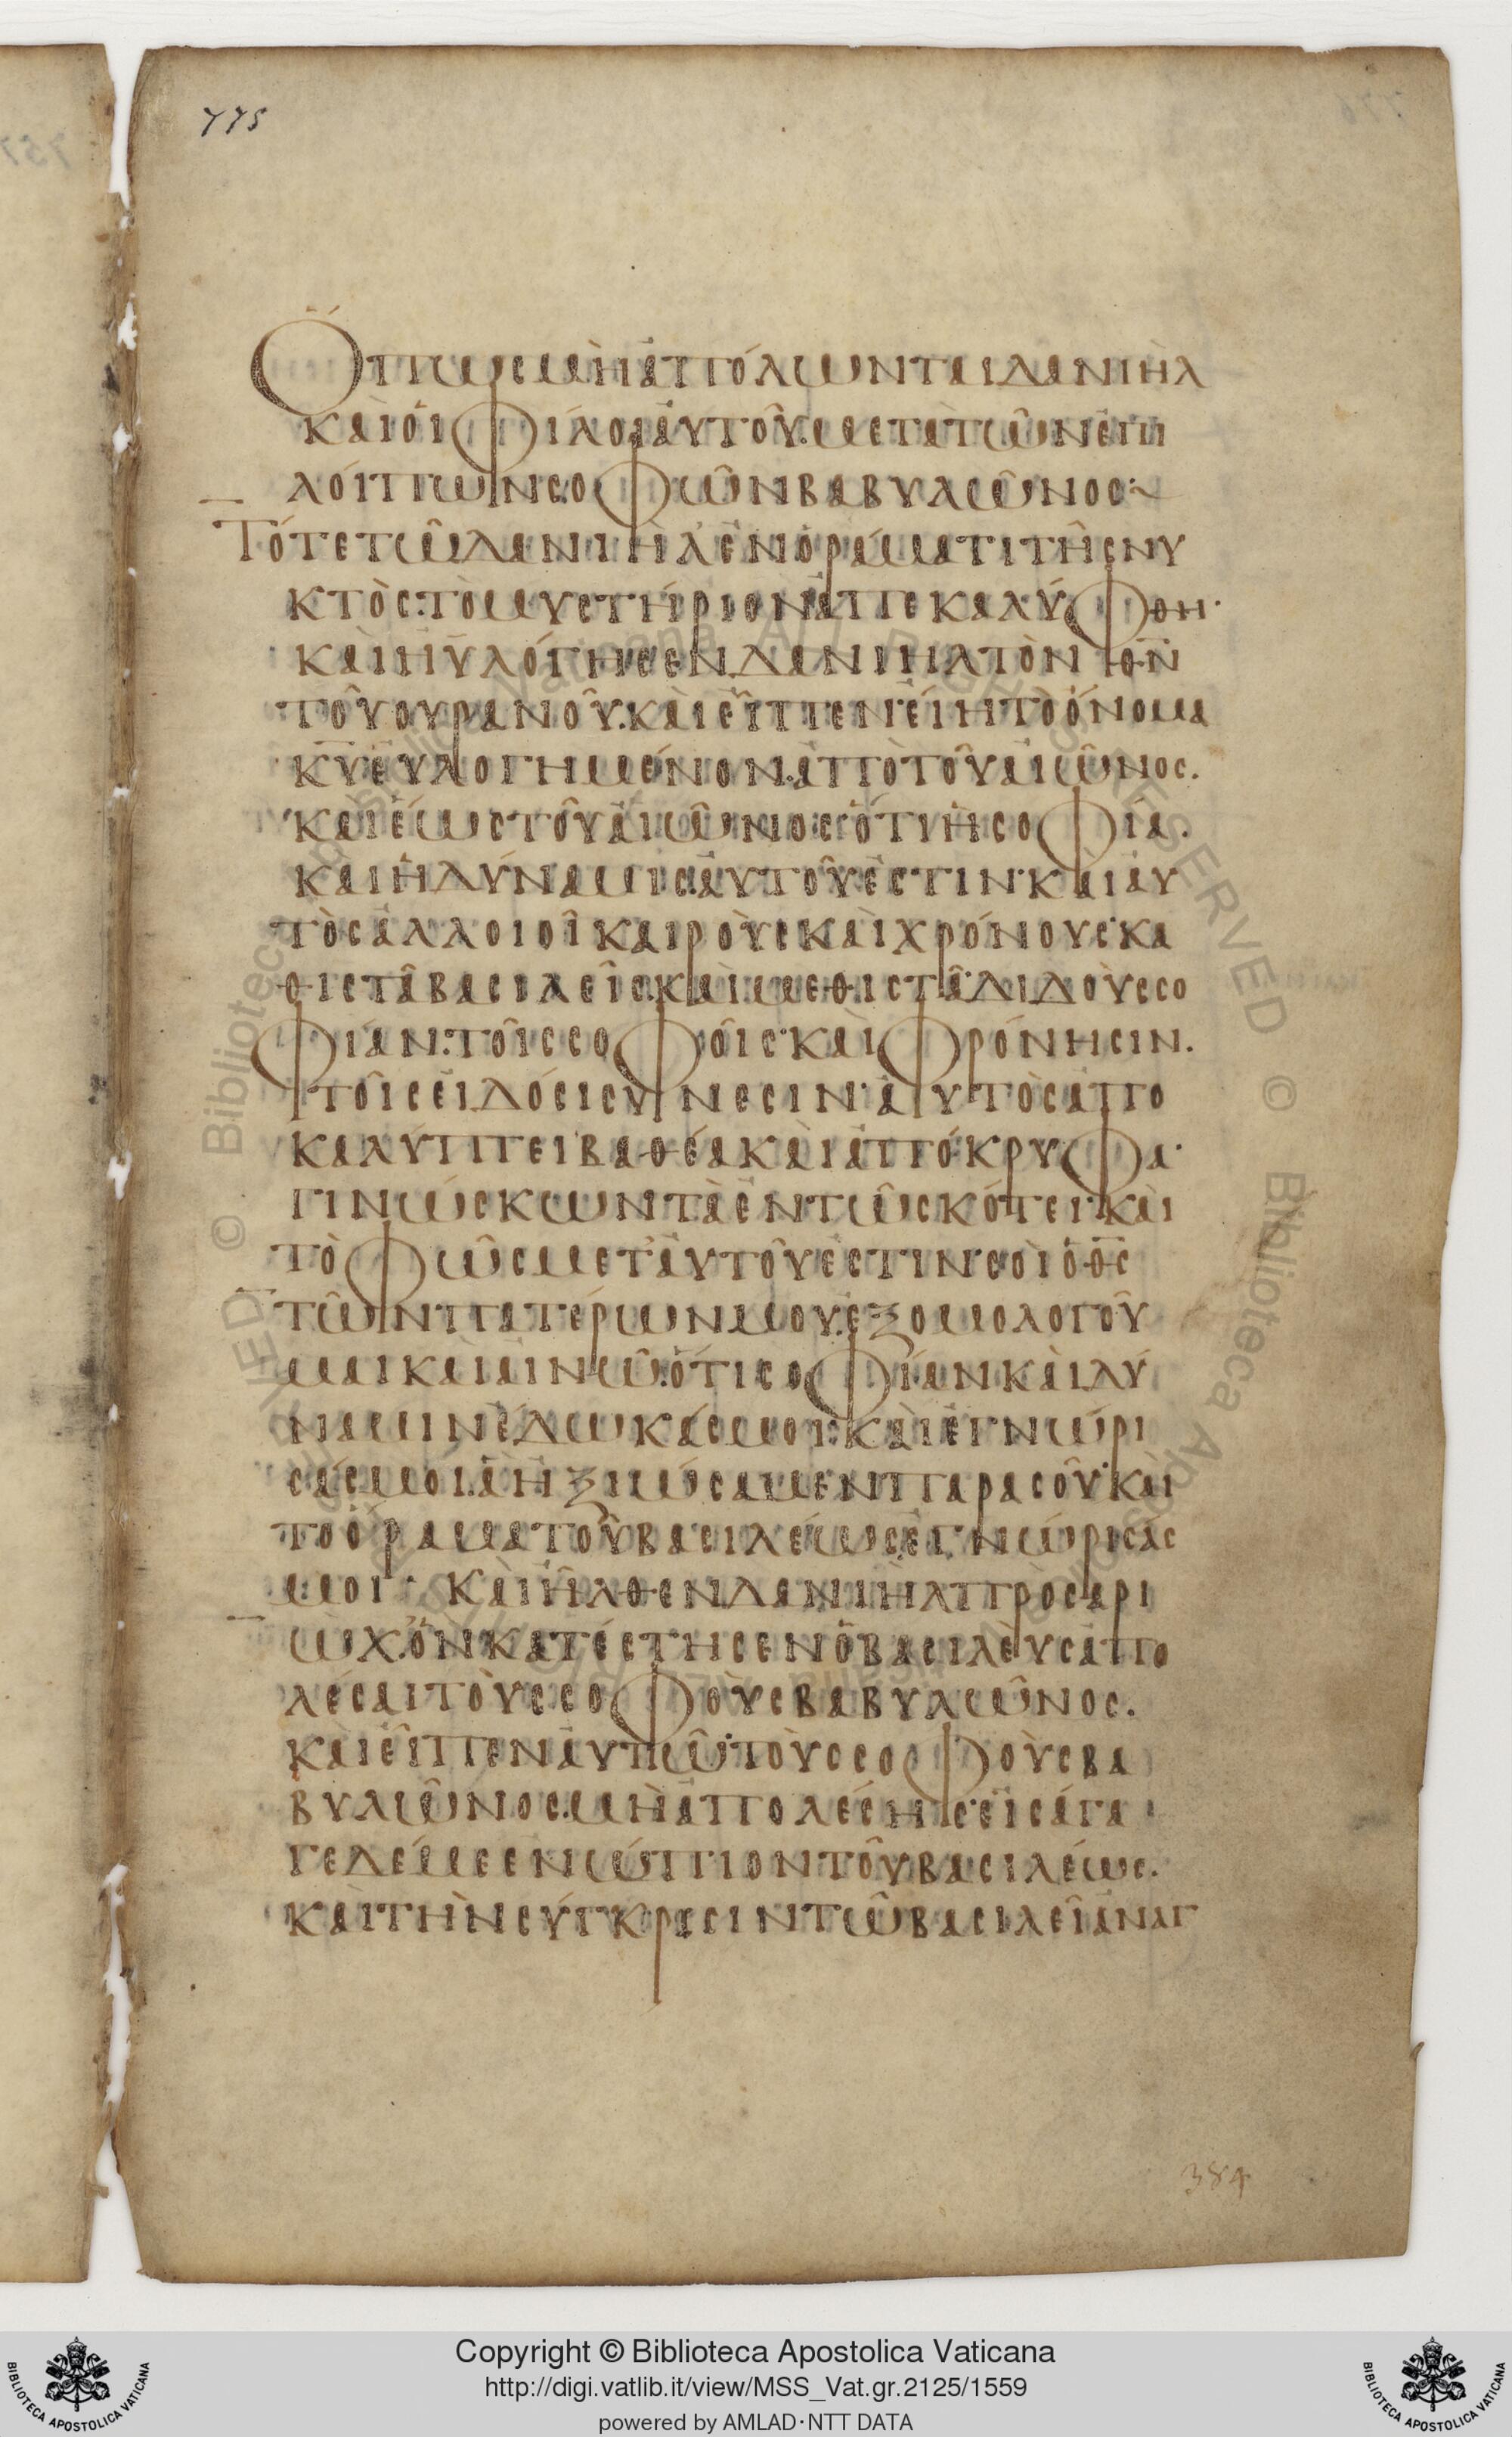 775
Ὅπως μὴ ἀπόλωνται δανιὴλ
καὶ ὁι φίλοι ἀυτοῦ. μετὰ τῶν ἐπι
λόιπων σοφῶν βαβυλῶνος:
Τότε τῶ δανιὴλ ἐν ὁράματι τῆς νυ
κτὸς. τὸ μυστήριον ἀπεκαλύφθη·
καὶ ηυλόγησεν δανιηλ τὸν θ̅ν̅
τοῦ ουρανοῦ. καὶ εἶπεν· ἐίη τὸ ὄνομα
κ̅υ̅ ἐυλογημένον. ἀπὸ τοῦ ἀιῶνος.
καὶ ἕως τοῦ ἀιῶνος· ὅτι ἡ σοφία.
καὶ ἡ δύναμις ἀυτοῦ ἐστιν· καὶ ἀυ
τὸς ἀλλοιοῖ καιροὺς καὶ χρόνους· κα
θιστᾶ βασιλεῖς. καὶ μεθιστᾶ· διδοὺς σο
φίαν. τοῖς σοφοῖς· καὶ φρόνησιν.
τοῖς ἐιδόσι συνεσιν· ἀυτὸς απο
καλύπτει βαθέα καὶ ἀπόκρυφα·
γινώσκων τὰ ἐν τῶ σκότει· καὶ
τὸ φῶς μετ' ἀυτοῦ ἐστιν· σὸι ὁ θ̅ς̅
τῶν πατέρων μου. ἐξομολογοῦ
μαι καὶ ἀινῶ. ὅτι σοφίαν καὶ δύ
ναμιν ἔδωκάς μοι· καὶ ἐγνώρι
σάς μοι. ἃ ηξιώσαμεν παρα σοῦ· καὶ
το ὅραμα τοῦ βασιλέως ἐγνώρισάς
μοι· Καὶ ἦλθεν δανιὴλ πρὸς αρι
ὼχ. ὃν κατέστησεν ὁ βασιλὲυς απο
λέσαι τοὺς σοφοὺς βαβυλῶνος.
καὶ εἶπεν ἀυτῶ· τοὺς σοφοὺς βα
βυλῶνος. μὴ ἀπολέσης· εἰσάγα
γε δέ με ενώπιον τοῦ βασιλέως.
καὶ τὴν σύγκρισιν τῶ βασιλεῖ ἀναγ
384
Copyright © Biblioteca Apostolica Vaticana
http://digi.vatlib.it/view/MSS_Vat.gr.2125/1559
powered by AMLAD·NTT DATA
BIBLIOTECA APOSTOLICA VATICANA
BIBLIOTECA APOSTOLICA VATICANA